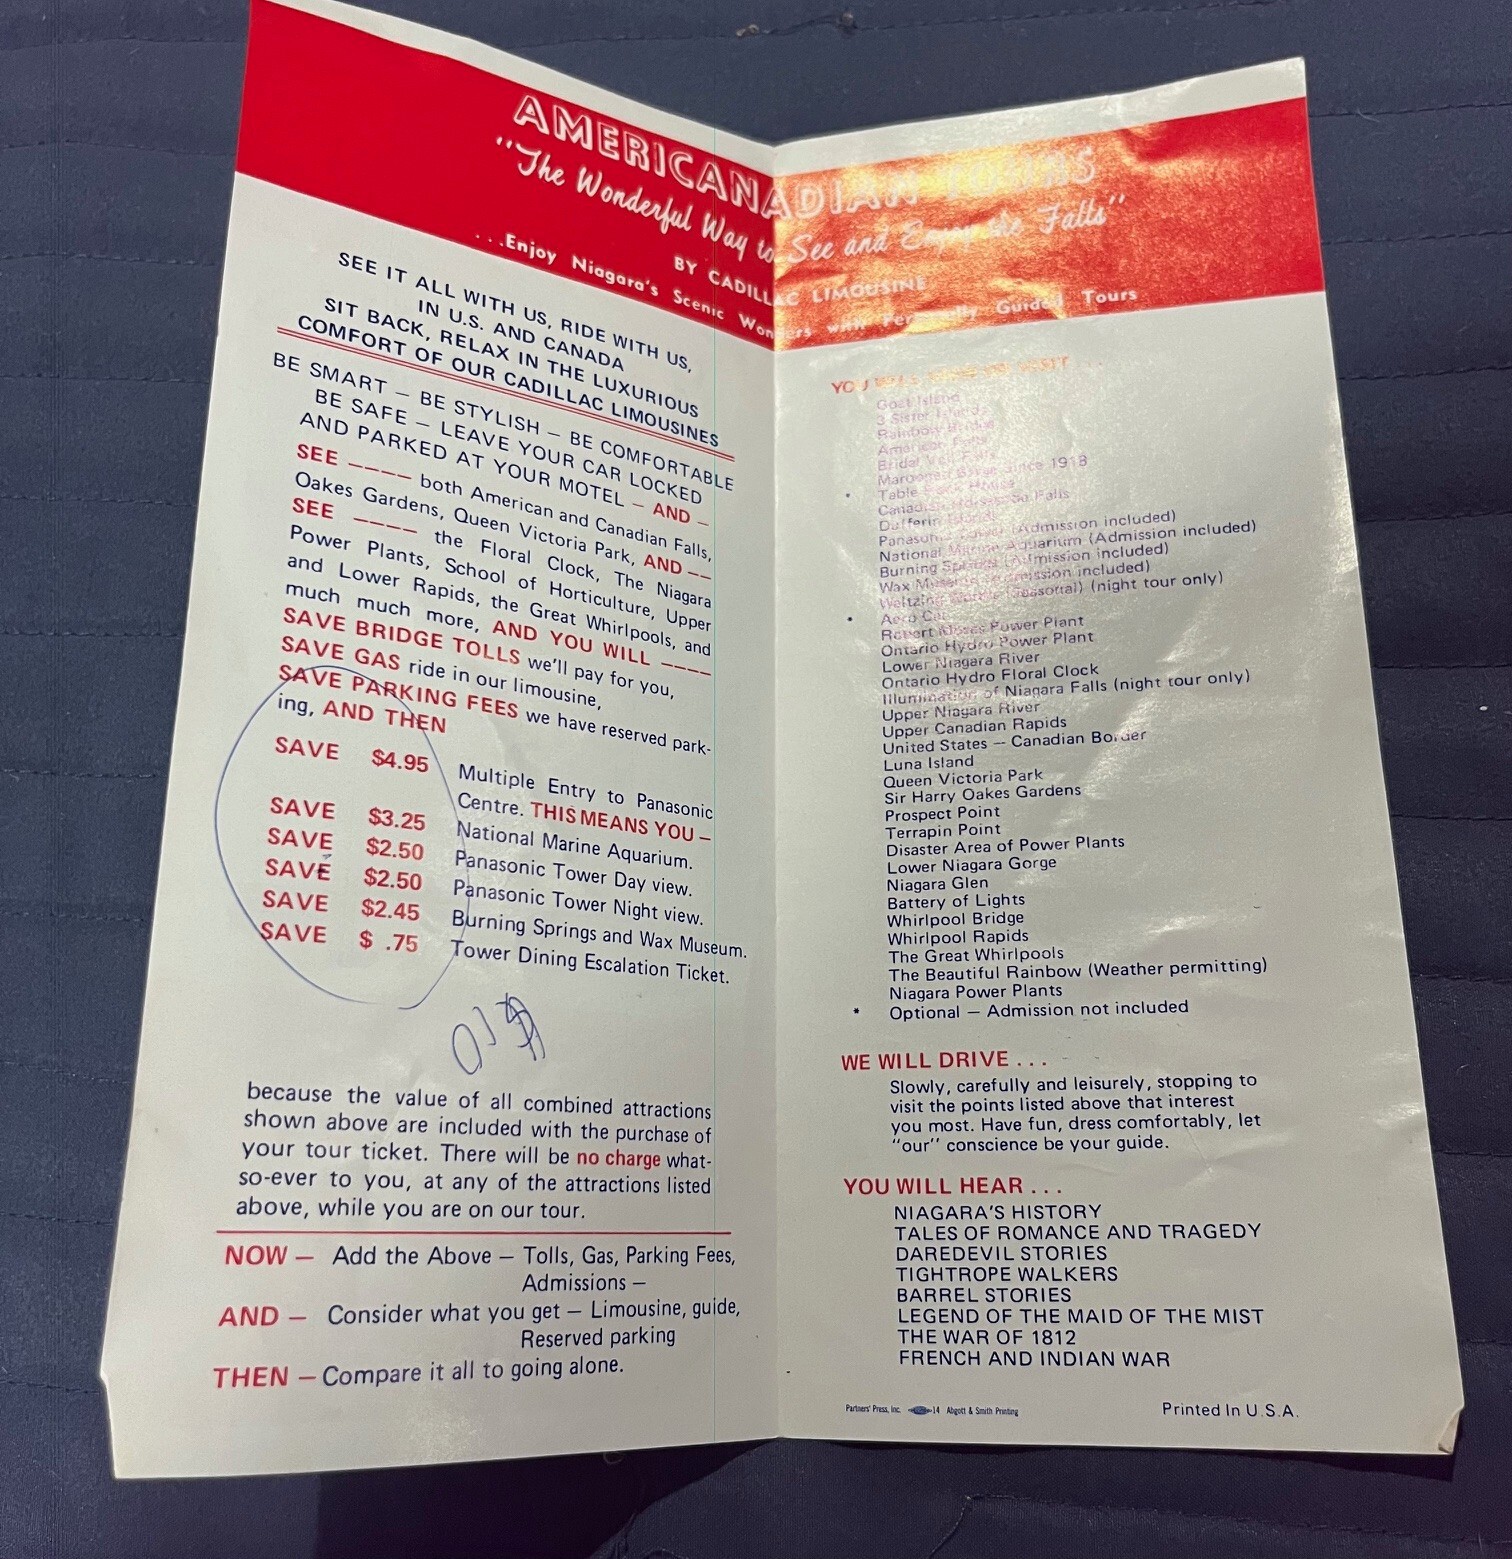 AMERICANADIAN TOURS
"The Wonderful Way to See and Enjoy the Falls"
BY CADILLAC LIMOUSINE
...Enjoy Niagara's Scenic Wonders with Personally Guided Tours
SEE IT ALL WITH US, RIDE WITH US,
IN U.S. AND CANADA
SIT BACK, RELAX IN THE LUXURIOUS
COMFORT OF OUR CADILLAC LIMOUSINES
BE SMART – BE STYLISH – BE COMFORTABLE
BE SAFE – LEAVE YOUR CAR LOCKED
AND PARKED AT YOUR MOTEL – AND –
SEE –––– both American and Canadian Falls,
Oakes Gardens, Queen Victoria Park, AND ––
SEE –––– the Floral Clock, The Niagara
Power Plants, School of Horticulture, Upper
and Lower Rapids, the Great Whirlpools, and
much much more, AND YOU WILL ––––
SAVE BRIDGE TOLLS we'll pay for you,
SAVE GAS ride in our limousine,
SAVE PARKING FEES we have reserved park-
ing, AND THEN
SAVE $4.95 Multiple Entry to Panasonic
Centre. THIS MEANS YOU –
SAVE $3.25 National Marine Aquarium.
SAVE $2.50 Panasonic Tower Day view.
SAVE $2.50 Panasonic Tower Night view.
SAVE $2.45 Burning Springs and Wax Museum.
SAVE $ .75 Tower Dining Escalation Ticket.
because the value of all combined attractions
shown above are included with the purchase of
your tour ticket. There will be no charge what-
so-ever to you, at any of the attractions listed
above, while you are on our tour.
NOW – Add the Above – Tolls, Gas, Parking Fees,
Admissions –
AND – Consider what you get – Limousine, guide,
Reserved parking
THEN – Compare it all to going alone.
YOU WILL VISIT ...
Goat Island
3 Sister Islands
Rainbow Bridge
American Falls
Bridal Veil Falls
Marooned Barge since 1918
* Table Rock House
Canadian Horseshoe Falls
Dufferin Islands
Panasonic Tower (Admission included)
National Marine Aquarium (Admission included)
Burning Springs (Admission included)
Wax Museum (Admission included)
Waltzing Waters (Seasonal) (night tour only)
* Aero Car
Robert Moses Power Plant
Ontario Hydro Power Plant
Lower Niagara River
Ontario Hydro Floral Clock
Illumination of Niagara Falls (night tour only)
Upper Niagara River
Upper Canadian Rapids
United States – Canadian Border
Luna Island
Queen Victoria Park
Sir Harry Oakes Gardens
Prospect Point
Terrapin Point
Disaster Area of Power Plants
Lower Niagara Gorge
Niagara Glen
Battery of Lights
Whirlpool Bridge
Whirlpool Rapids
The Great Whirlpools
The Beautiful Rainbow (Weather permitting)
Niagara Power Plants
* Optional – Admission not included
WE WILL DRIVE ...
Slowly, carefully and leisurely, stopping to
visit the points listed above that interest
you most. Have fun, dress comfortably, let
"our" conscience be your guide.
YOU WILL HEAR ...
NIAGARA'S HISTORY
TALES OF ROMANCE AND TRAGEDY
DAREDEVIL STORIES
TIGHTROPE WALKERS
BARREL STORIES
LEGEND OF THE MAID OF THE MIST
THE WAR OF 1812
FRENCH AND INDIAN WAR
Partners' Press, Inc. 14 Abgott & Smith Printing
Printed In U.S.A.